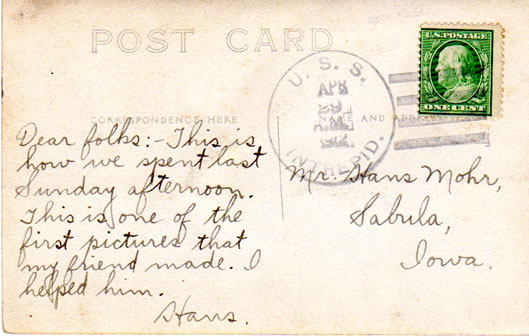 POST CARD
U.S. POSTAGE
ONE CENT
U. S. S.
APR
29
A.M.
INTREPID.
CORRESPONDENCE HERE
NAME AND ADDRESS
Dear folks:- This is
how we spent last
Sunday afternoon.
This is one of the
first pictures that
my friend made. I
helped him.
Hans.
Mr. Hans Mohr,
Sabula,
Iowa.